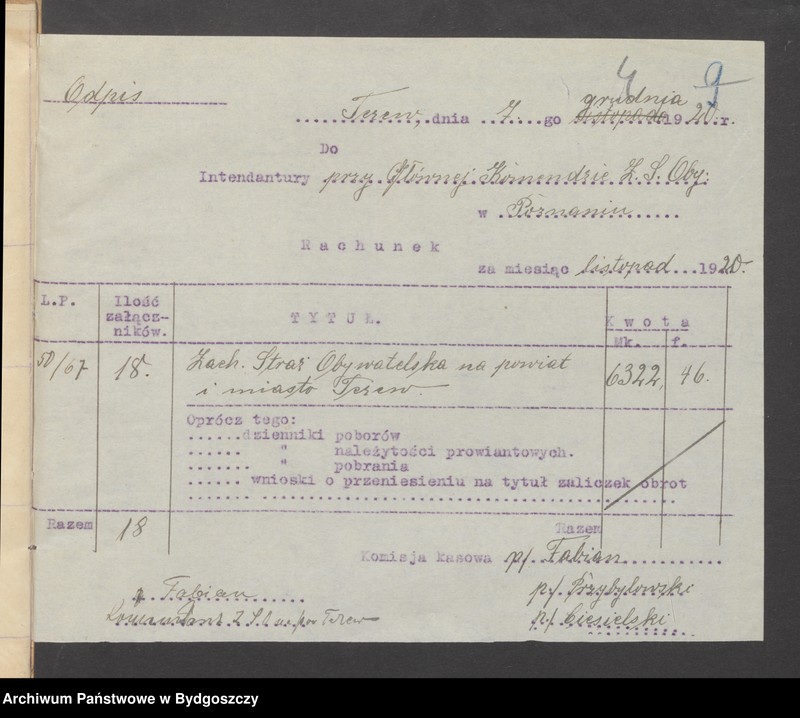 4 9
Odpis
grudnia
Tczew, dnia 7. go listopada 1920 r.
Do
Intendantury przy Głównej Komendzie Z. S. Oby:
w Poznaniu
Rachunek
za miesiąc listopad 1920.
L.P. Ilość załącz-ników. TYTUŁ. Kwota
Mk. f.
50/67 18. Zach. Straż Obywatelska na powiat 6322, 46.
i miasto Tczew.
Oprócz tego:
......dzienniki poborów
...... " należytości prowiantowych.
....... " pobrania
...... wnioski o przeniesieniu na tytuł zaliczek obrot
Razem 18 Razem
Komisja kasowa p/. Fabian
Fabian p./. Przybyłowski
Komendant Z. S. O. na pow Tczew p/. Ciesielski
Archiwum Państwowe w Bydgoszczy